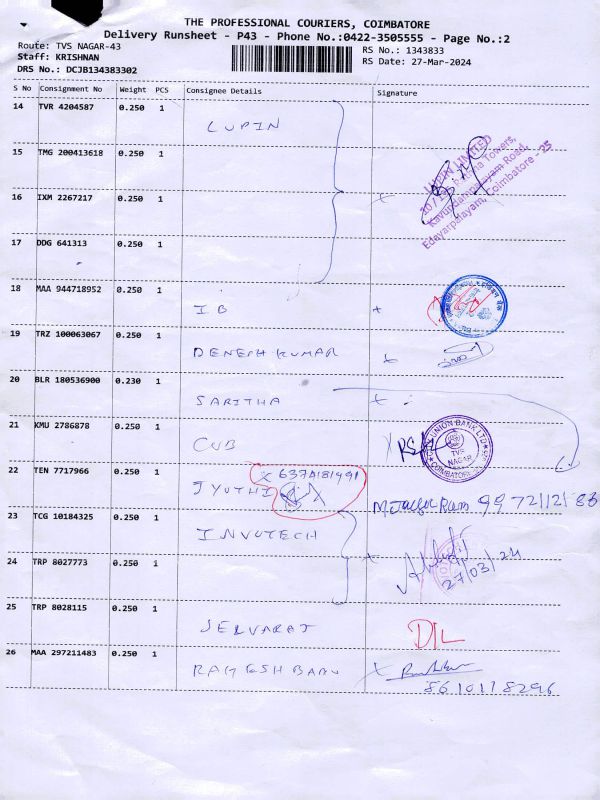 THE PROFESSIONAL COURIERS, COIMBATORE
Delivery Runsheet - P43 - Phone No.:0422-3505555 - Page No.:2
Route: TVS NAGAR-43
RS No.: 1343833
Staff: KRISHNAN
RS Date: 27-Mar-2024
DRS No.: DCJB134383302
S No Consignment No Weight PCS Consignee Details Signature
14 TVR 4204587 0.250 1
LUPIN
LUPIN LIMITED
Towers,
Kavundampalayam Road,
Edayarpalayam, Coimbatore - 25
15 TMG 200413618 0.250 1
16 IXM 2267217 0.250 1
17 DDG 641313 0.250 1
18 MAA 944718952 0.250 1
I B
19 TRZ 100063067 0.250 1
DENESH KUMAR
20 BLR 180536900 0.230 1
SARITHA
21 KMU 2786878 0.250 1
CUB
UNION BANK LTD
TVS
NAGAR
COIMBATORE
22 TEN 7717966 0.250 1
JYOTHI
M.
Ram 99 721121 83
23 TCG 10184325 0.250 1
INVOTECH
27/03/24
24 TRP 8027773 0.250 1
25 TRP 8028115 0.250 1
SELVARAJ
D/L
26 MAA 297211483 0.250 1
RAMESH BABU